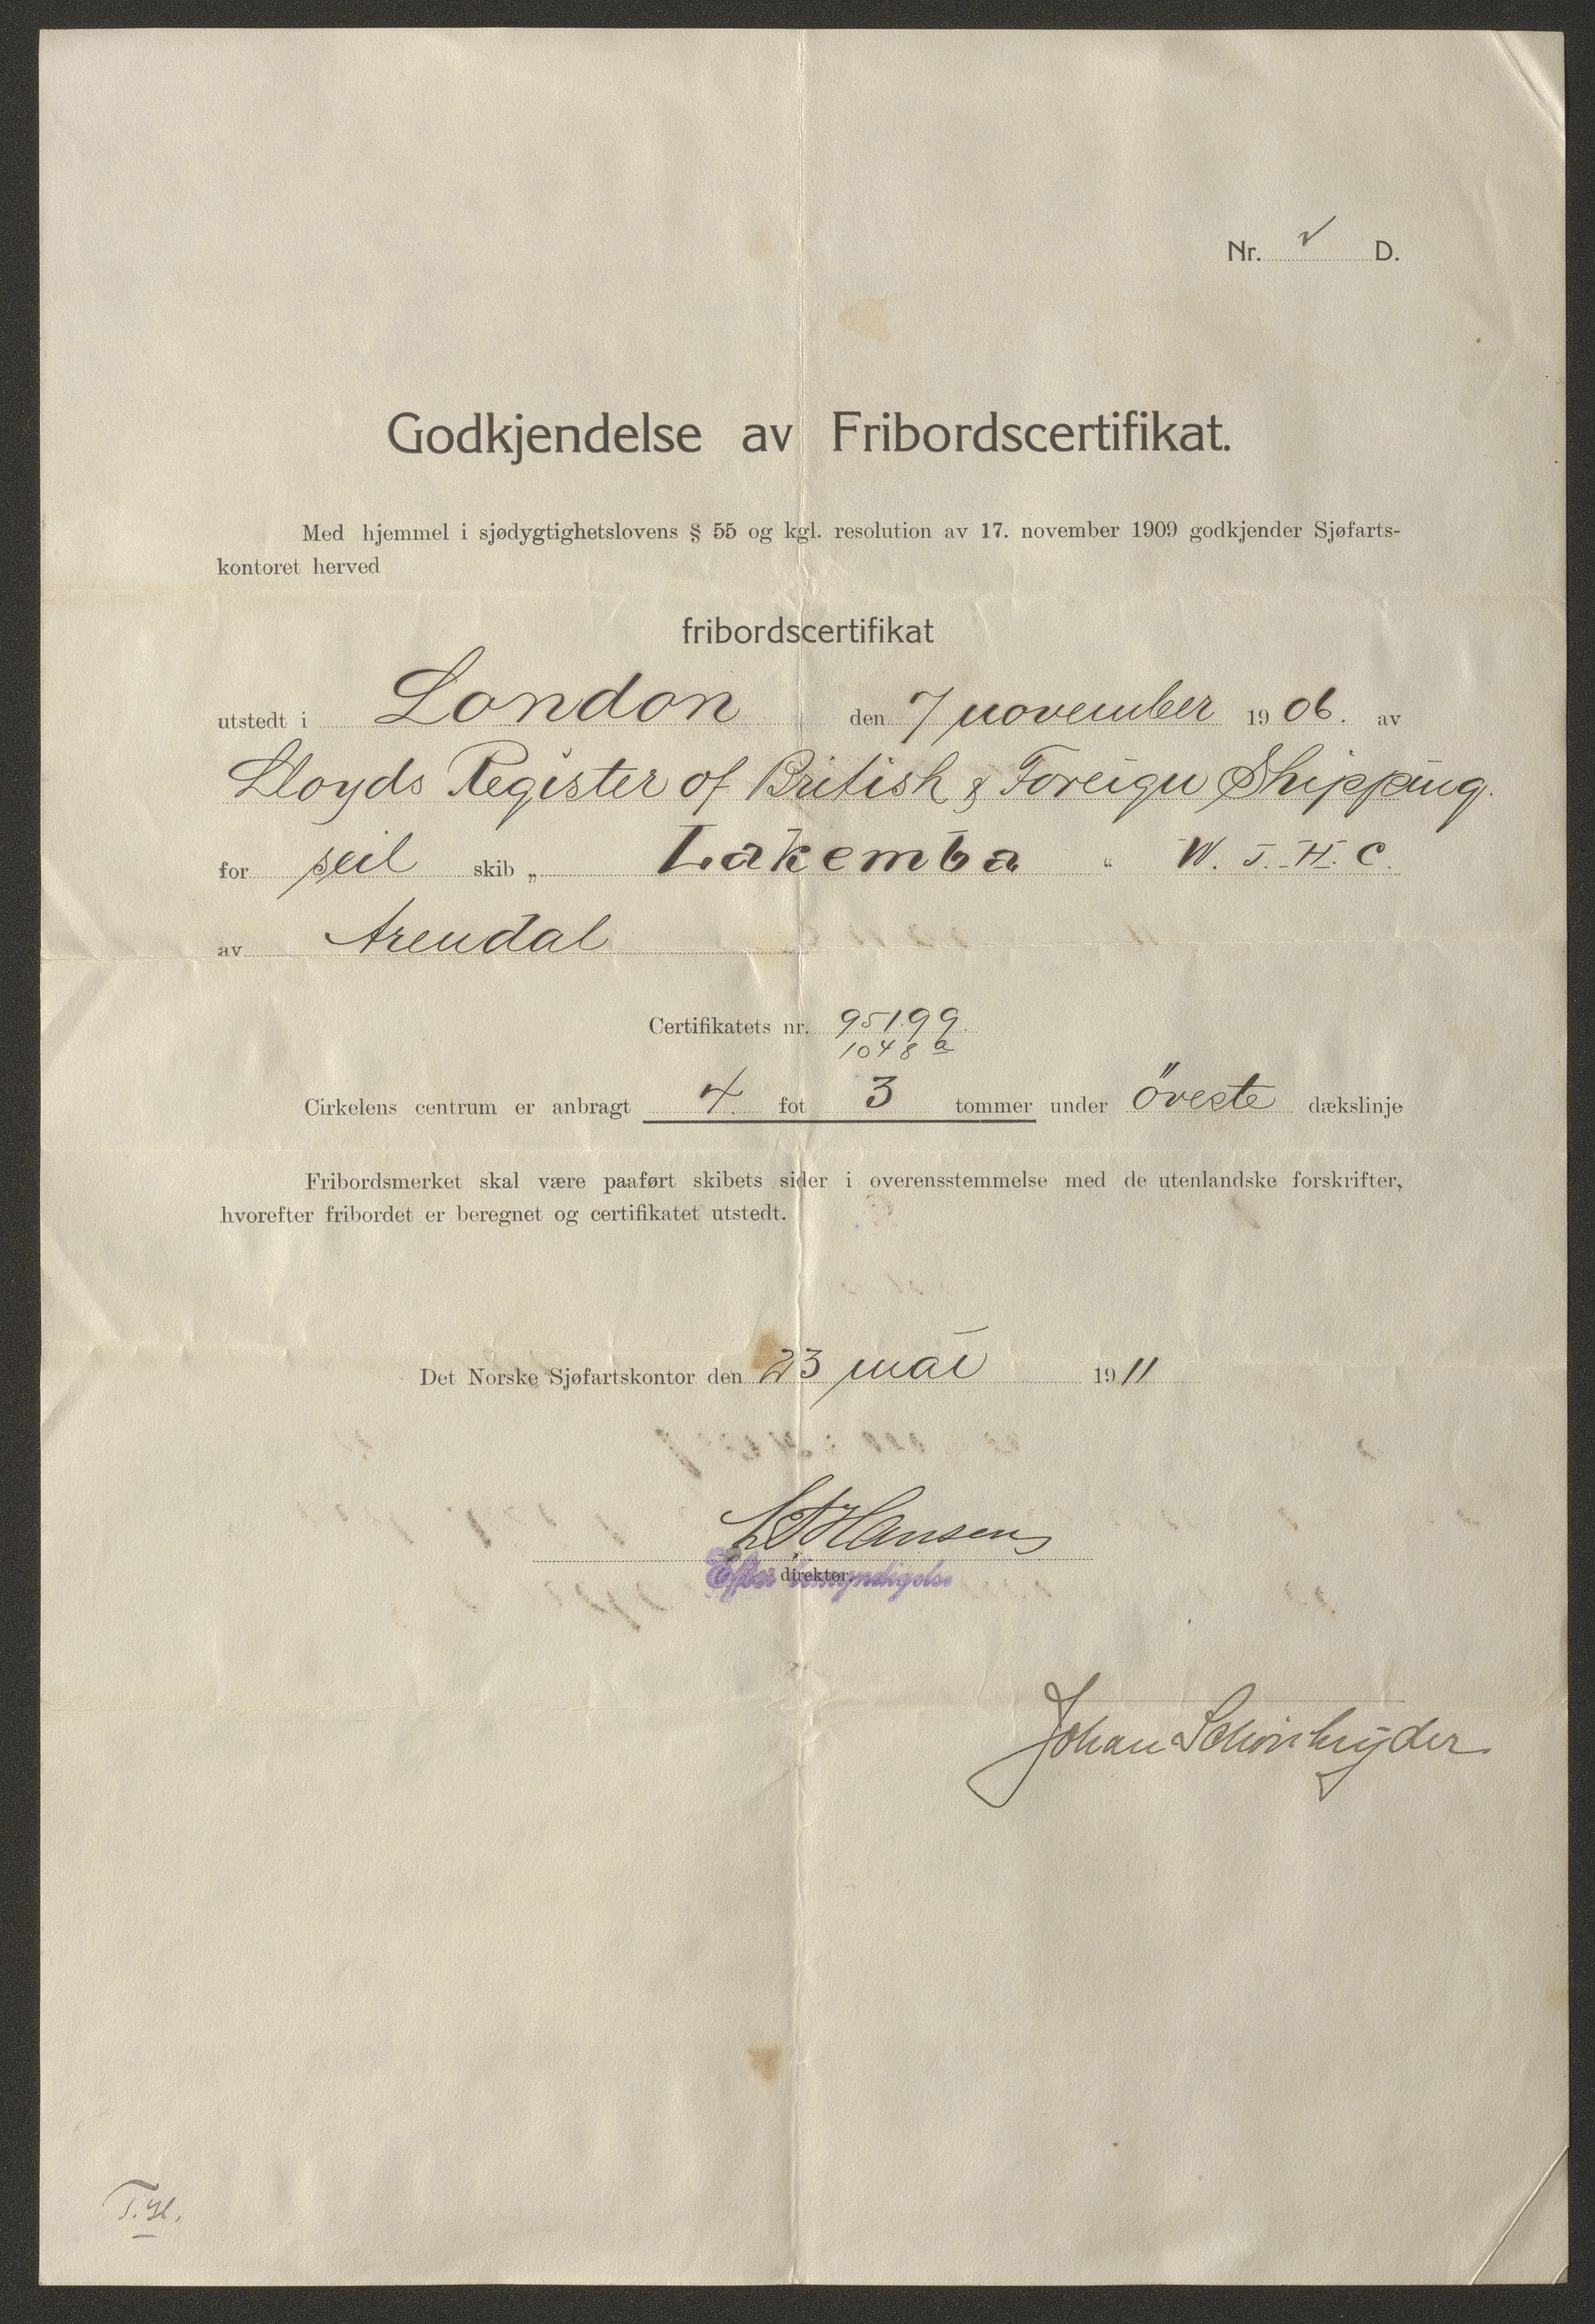 Nr. √ D.
Godkjendelse av Fribordscertifikat.
Med hjemmel i sjødygtighetslovens § 55 og kgl. resolution av 17. november 1909 godkjender Sjøfarts-
kontoret herved
fribordscertifikat
utstedt i London den 7 november 1906. av
Lloyds Register of British & Foreign Shipping.
for seil skib „ Lakemba “ W. J. H. C.
av Arendal
Certifikatets nr. 95199.
1048 a
Cirkelens centrum er anbragt 4 fot 3 tommer under öveste dækslinje
Fribordsmerket skal være paaført skibets sider i overensstemmelse med de utenlandske forskrifter,
hvorefter fribordet er beregnet og certifikatet utstedt.
Det Norske Sjøfartskontor den 23 mai 1911
Hansen
direktør.
Efter bemyndigelse
Johan